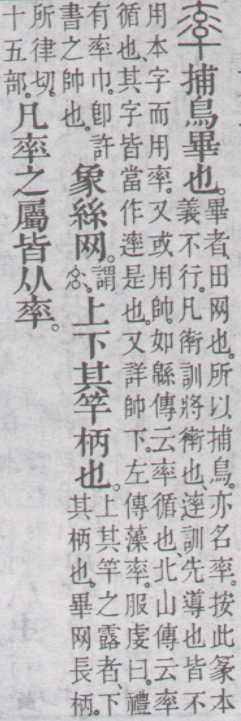 率捕鳥畢也。
畢者、田网也。所以捕鳥。亦名率。按此篆本
義不行。凡𧗿訓將𧗿也、䢦訓先導也皆不
用本字而用率。又或用帥。如緜傳云率循也、北山傳云率
循也、其字皆當作䢦是也。又詳帥下。左傳藻率。服虔曰。禮
有率巾。卽許
書之帥也。
象絲网。
謂
上下其竿柄也。
上其竿之露者、下
其柄也。畢网長柄。
所律切。
十五部。
凡率之屬皆从率。